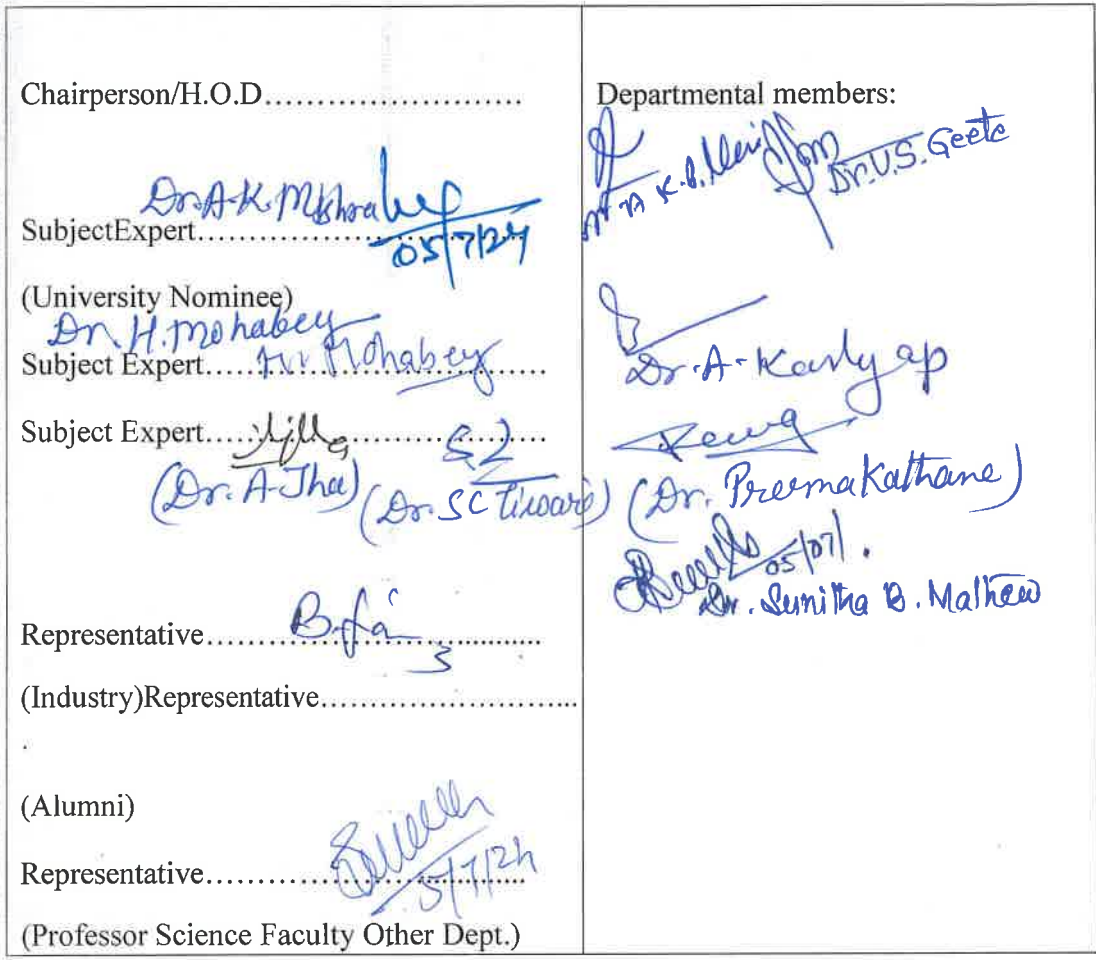 Chairperson/H.O.D........................
Dr. A.K. Mishra
SubjectExpert........................
05/7/24
(University Nominee)
Dr. H. Mohabey
Subject Expert.....H. Mohabey.........
Subject Expert........................
(Dr. A. Jha) (Dr. SC Tiwari)
Representative........................
(Industry)Representative........................
.
(Alumni)
Representative........................
5/7/24
(Professor Science Faculty Other Dept.)
Departmental members:
Dr. U.S. Geete
Dr. A. Kashyap
(Dr. Prerma Kathane)
05/07/.
Dr. Sunitha B. Mathew